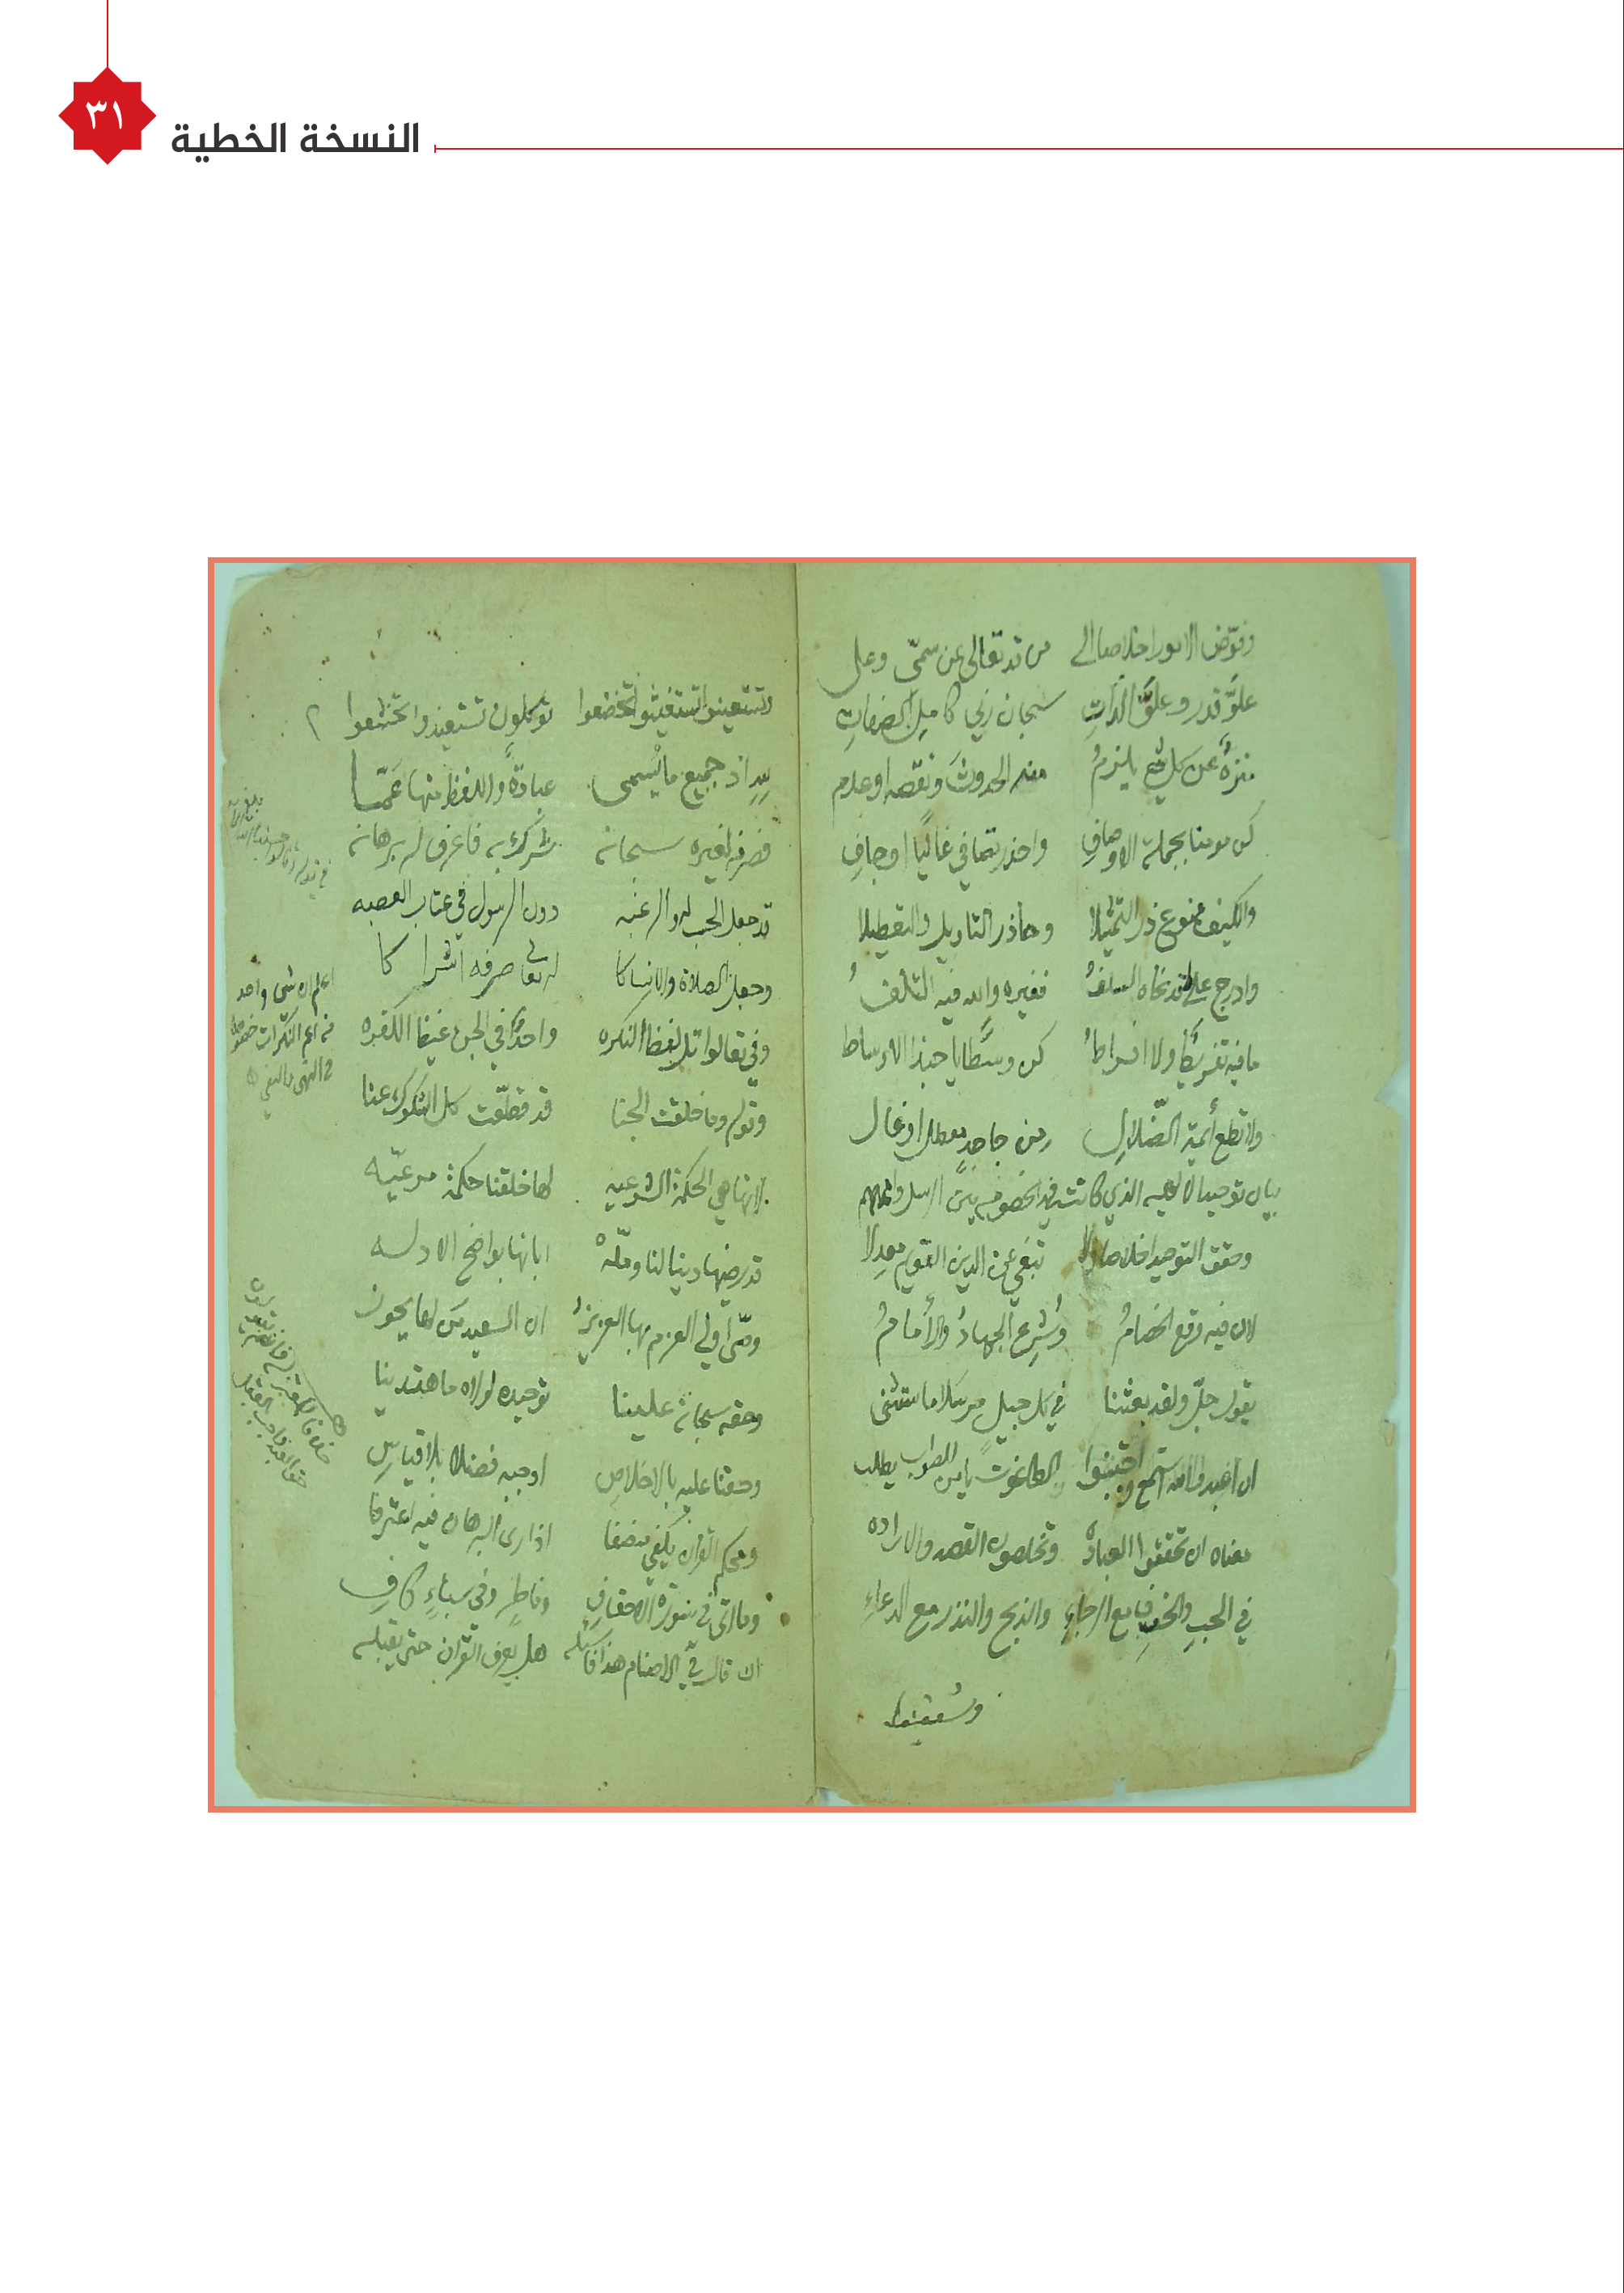 ٣١
النسخة الخطية
وفوّض الامور اخلاصا الى من قد تعالى عن سمىّ وعلى
علوَّ قدر وعلوَّ الذات سبحان ربي كامل الصفات
منزهٌ عن كل شي يلزمُ منه الحدوثَ ونقصه او عدم
كن مومنا بجملة الاوصافِ واحذر تكن في غاليًا او جافِ
والكيف ممنوع ذر التمثيلا وحاذر التاويل والتعطيلا
وادرج على قد نحاه السلفُ فغيره والله فيه التلفُ
ما فيه تفريطٌ ولا افراطُ كن وسَّطا يا حبذا الاوساط
ولا تطع أئمة الضّلالِ من جاحدٍ معطل او غال
بيان توحيد الالهيه الذي كانت فيه الخصومه بين الرسل واممهم
وحقق التوحيد اخلاصا ولا تبغي عن الدين القويم معدلا
لان فيه وقع الخصامُ وشُرِع الجهادُ والأمامُ
يقول جلّ ولقد بعثنا في كل جيلٍ مرسلا ما استثنى
ان اعبدوا الله استمع واجتنبوا الطاغوت يا من للصواب يطلب
معناه ان تحققوا العبادهْ وتخلصون القصد والاراده
في الحبِ والخوفِ مع الرجاءِ والذبح والنذر مع الدعاءِ
وتستعينوا تستغيثوا تخضعوا توكلون تستعيذوا تخشعوا
جميع ما يُسمى عبادةً واللفظ منها عَمّا
فصرفه لغيره سبحانه شرك به فاعرف له برهانه
قد جعل الحب له والرغبه دون الرسول في عتاب العصبه
وجعل الصلاة والانساكا له تعالى صرفه اشراكا
وفي تعالوا تل لفظ النكره واحدًا في الجن غيظ الكفره
وقوله وما خلقت الجنا قد قطّعت كل الشكوك عنا
لانها هي الحكمة الشرعيه لها خلقنا حكمة مرعيّه
قد رضيها دينا لنا وملّهْ ابانها بواضح الادله
وصّى اولي العزم بها العزيزُ ان السعيد من لها يحوز
وحقه سبحانه علينا توحيده لولاه ما هتدينا
وحقنا عليه بالاخلاصِ اوجبه فضلا بلا قياسِ
ومحكم القران يكفي منصفا اذا رى البرهان فيه اعترفا
وما اتى في سورة الاحقافِ وفاطرٍ وفي سباءٍ كافِ
ان قال في الاصنام هذا فاسئله هل يعرف القران حتى يقبله
اعلم ان شي واحد
من اعم النكرات خصوصا
في النهى والنفي